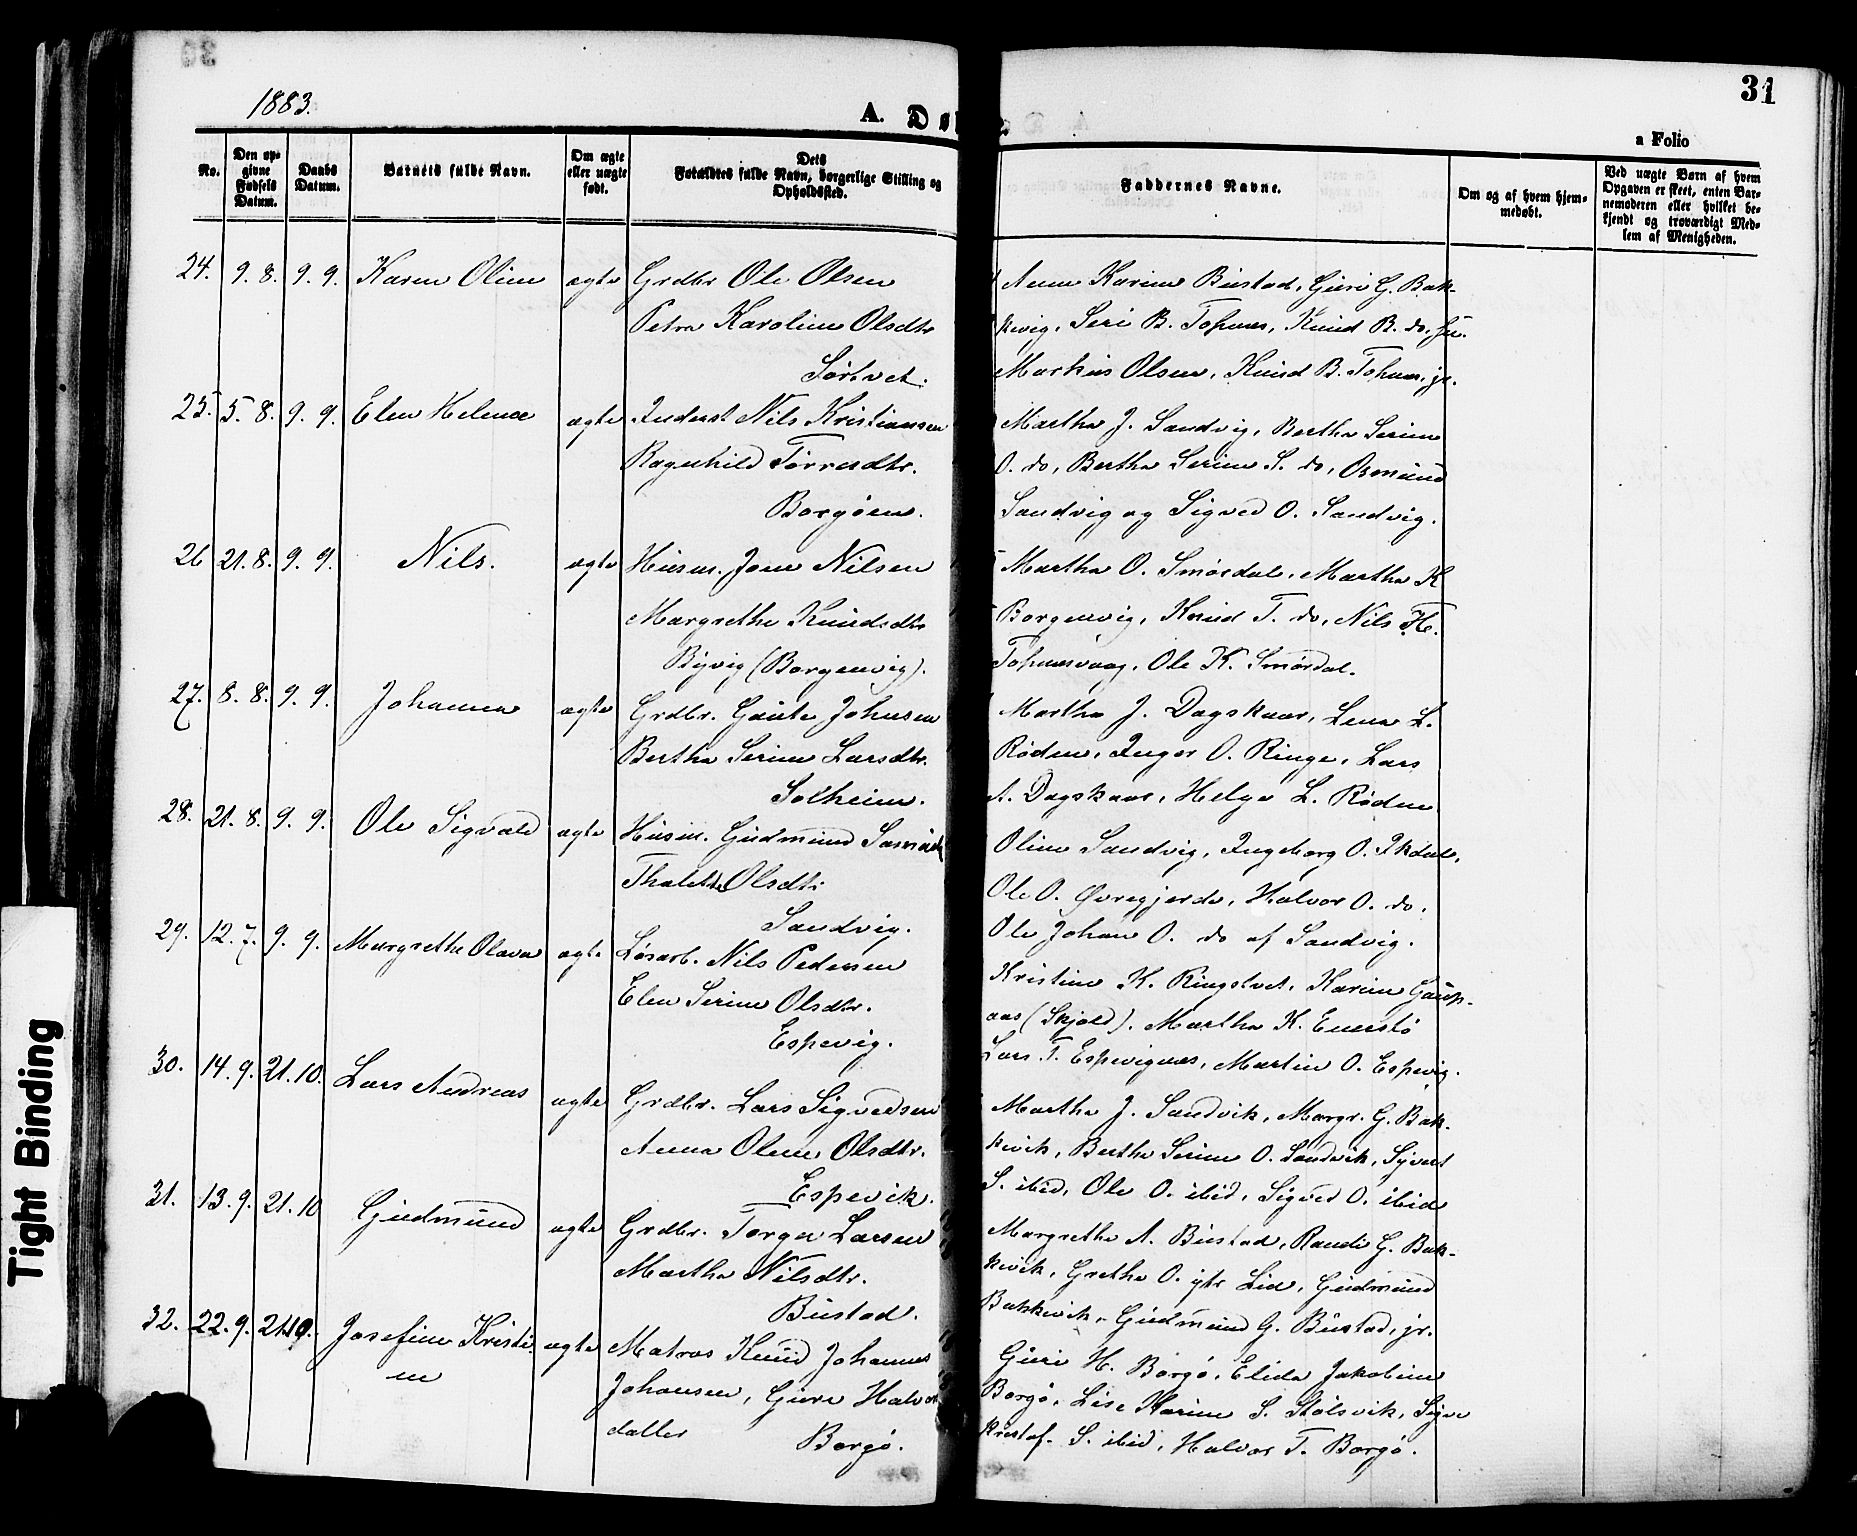 30
31
1883.
A. Dø
a Folio
No.
Den opgivne Fødsels Datum.
Daabs Datum.
Barnets fulde Navn.
Om ægte eller uægte født.
Dets Forældres fulde Navn, borgerlige Stilling og Opholdssted.
Faddernes Navne.
Om og af hvem hjemmedøbt.
Ved uægte Børn af hvem Opgaven er skeet, enten Barnemoderen eller hvilket bekjendt og troværdigt Medlem af Menigheden.
24. 9. 8. 9. 9. Karen Oline ægte Grdbr Ole Olsen
Petra Karoline Olsdtr
Sørtvet.
Anna Karine Bustad, Guri G. Bak-
kevig, Seri B. Tofmes, Knud B. do, sn.
Markus Olsen, Knud B. Tofmes, jr.
25. 5. 8. 9. 9. Elen Helene ægte Inderst Nils Kristiansen
Ragnhild Torresdtr.
Borgøen.
Martha J. Sandvig, Bertha Serine
O. do, Bertha Serine S. do, Osmund
Sandvig og Sigved O. Sandvig.
26 21. 8. 9. 9. Nils. ægte Husm. Jone Nilsen
Margrethe Knudsdtr
Byvig (Borgenvig).
Martha O. Smørdal, Martha K
Borgenvig, Knud T. do, Nils H.
Tofmesvaag, Ole K. Smørdal.
27. 8. 8. 9. 9. Johanna ægte Grdbr. Gaute Johnsen
Bertha Serine Larsdtr.
Solheim.
Martha J. Dagskaar, Lena L.
Røden, Inger O. Ringe, Lars
A. Dagskaar, Helge L. Røden
28. 21. 8. 9. 9. Ole Sigvald ægte Husm. Gudmund
Thalette Olsdtr
Sandvig.
Oline Sandvig, Ingeborg O. Ikdal,
Ole O. Øvregjerde, Halvor O. do,
Ole Johan O. do af Sandvig.
29. 12. 7. 9. 9. Margrethe Olava ægte Løsarb. Nils Pedersen
Elen Serine Olsdtr.
Espevig.
Kristine K. Ringstvet, Karine Gaup-
aas (Skjold), Martha K. Enerstø
Lars T. Espevignes, Martin O. Espevig.
30. 14. 9. 21. 10. Lars Andreas ægte Grdbr. Lars Sigvedsen
Anna Oline Olsdtr.
Espevik.
Martha J. Sandvik, Margr. G. Bak-
kevik, Bertha Serine O. Sandvik, Syvert
S. ibid, Ole O. ibid, Sigved O. ibid
31. 13. 9. 21. 10 Gudmund ægte Grdbr. Torger Larsen
Martha Nilsdtr.
Bustad.
Margrethe A. Bustad, Randi G. Bak-
kevik, Grethe O. ytr Lid, Gudmund
Bakkevik, Gudmund G. Bustad, jr.
32. 22. 9. 21. 10. Josefine Kristi-
ne
ægte Matros Knud Johannes
Johansen, Gure Halvor
datter
Borgø.
Guri H. Borgø, Elida Jakobine
Borgø, Lise Karine S. Stølsvik, Sigve
Kristof. S. ibid, Halvor T. Borgø.
Tight Binding